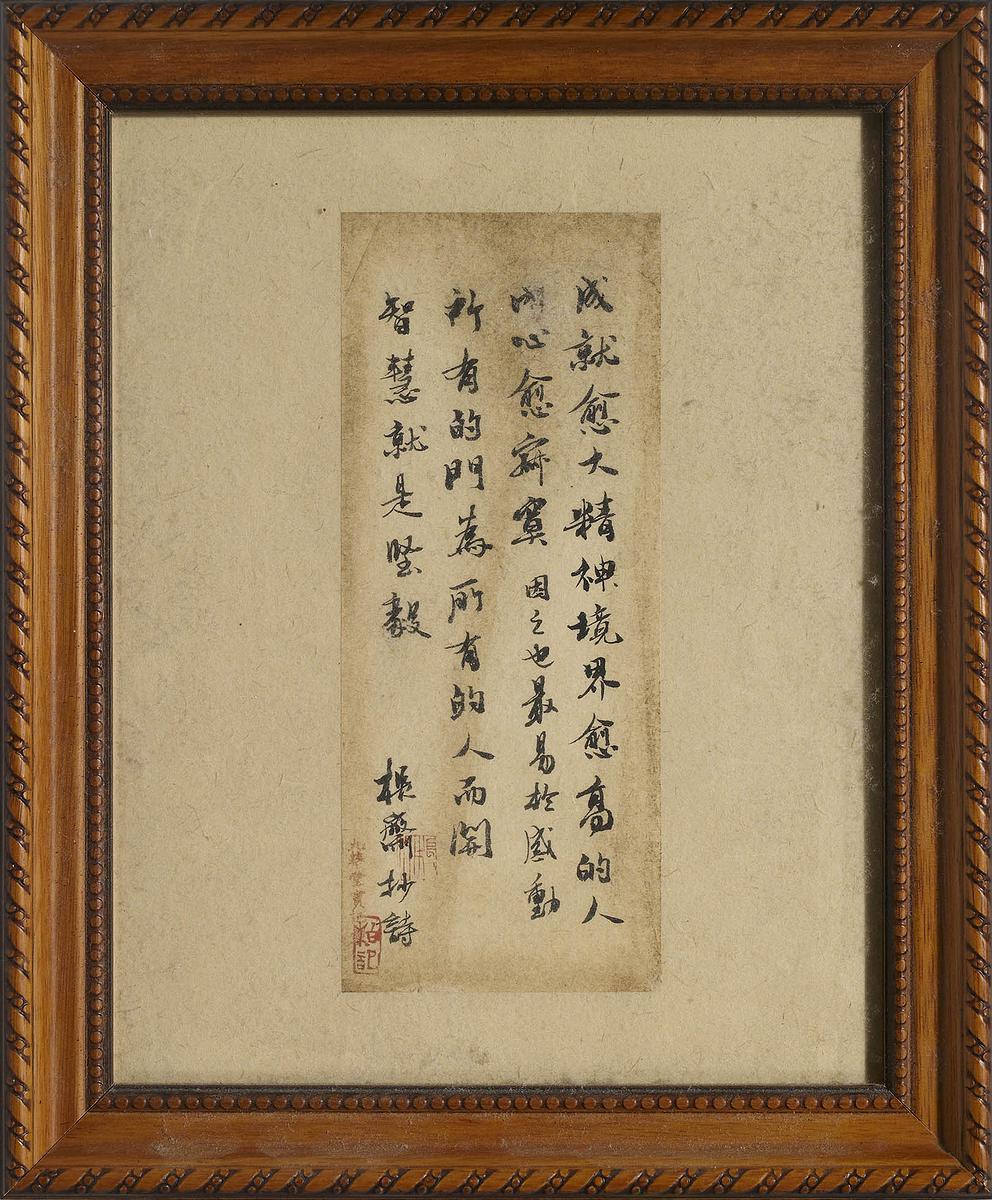 成就愈大精神境界愈高的人
內心愈寂寞因之也最易於感動
所有的門為所有的人而開
智慧就是堅毅
齋抄詩